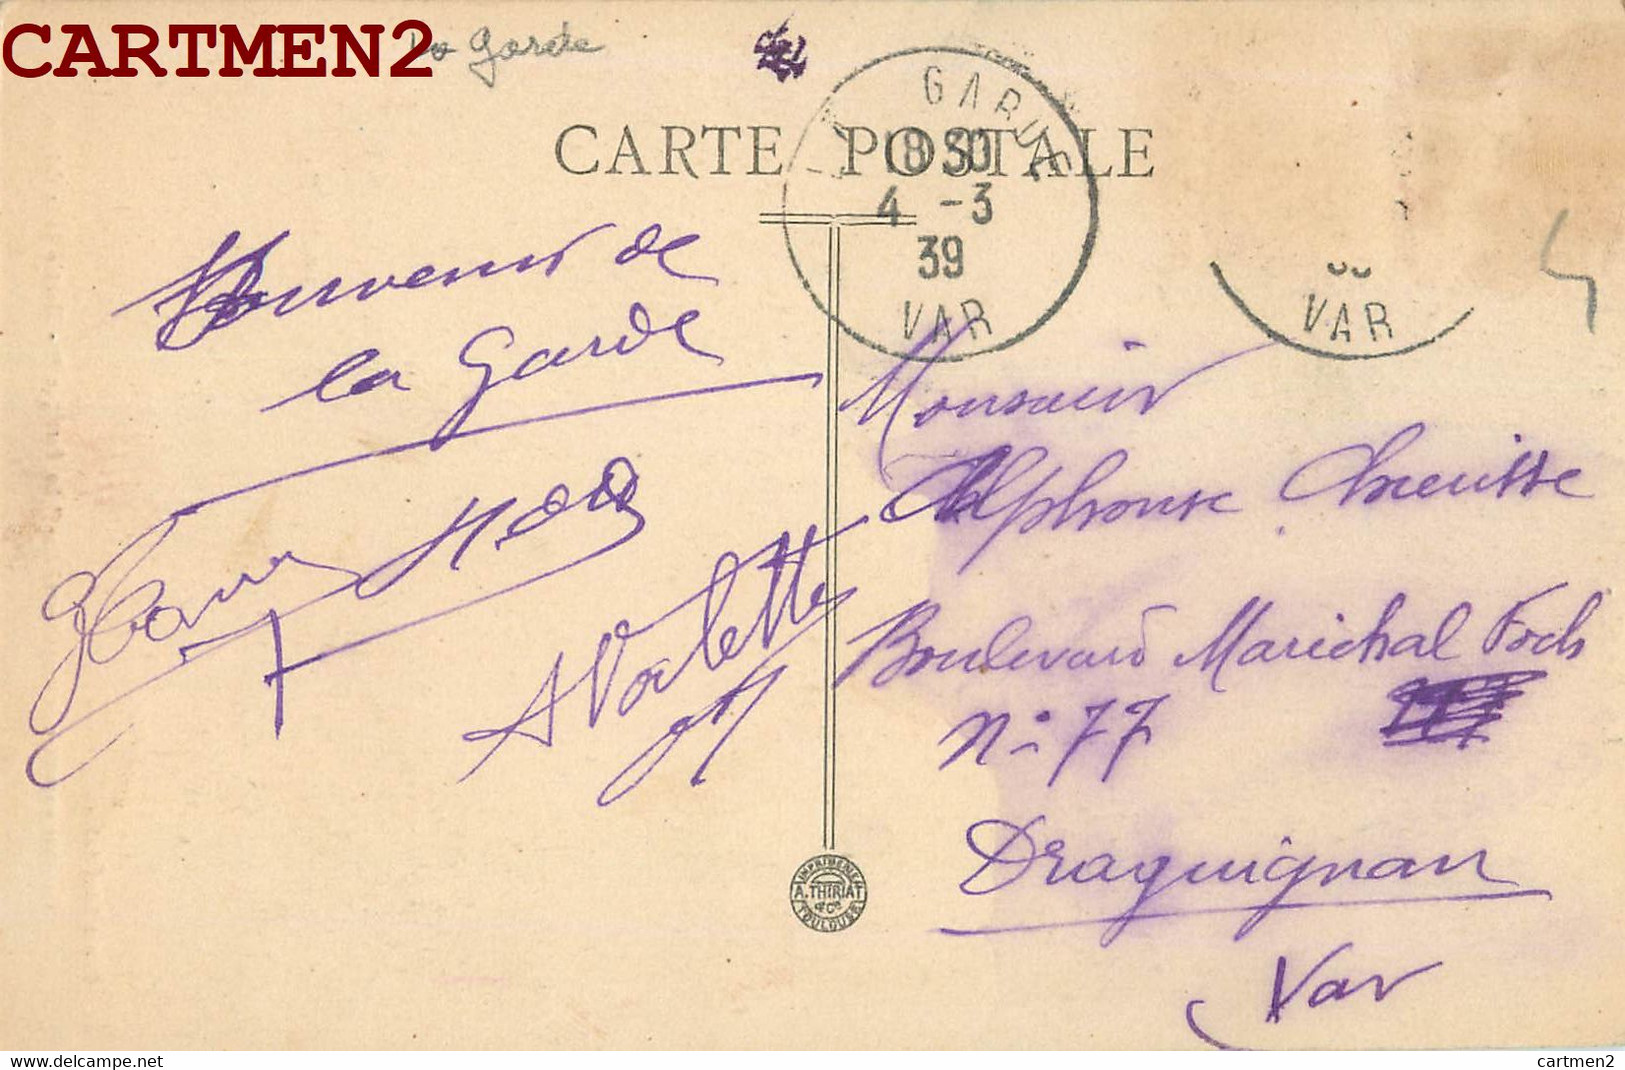 CARTMEN2
La Garde
CARTE POSTALE
GARDE
18 30
4 -3
39
VAR
VAR
Souvenir de
la Garde
A Valette
Monsieur
Alphonse
Boulevard Maréchal Foch
N° 77
Draguignan
Var
IMPRIMERIE
A. THIRIAT
& Cie
TOULOUSE
Delcampe.net
cartmen2